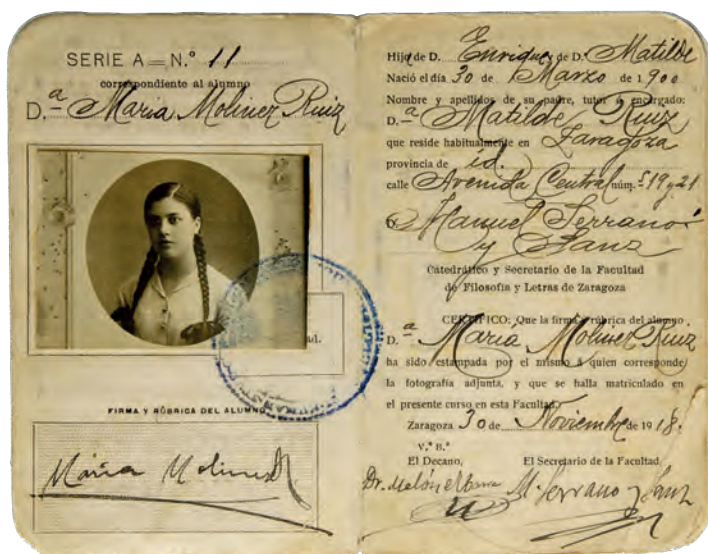 SERIE A = N.º 11
correspondiente al alumno
D.ª Maria Moliner Ruiz
ad.
FIRMA Y RÚBRICA DEL ALUMNO
María Moliner R.
Hijo de D. Enrique y de D.ª Matilde
Nació el día 30 de Marzo de 1900
Nombre y apellidos de su padre, tutor ó encargado:
D.ª Matilde Ruiz
que reside habitualmente en Zaragoza
provincia de id.
calle Avenida Central núm. 519 y 21
D. Manuel Serrano
y Sanz
Catedrático y Secretario de la Facultad
de Filosofía y Letras de Zaragoza
CERTIFICO: Que la firma y rúbrica del alumno
D.ª María Moliner Ruiz
ha sido estampada por el mismo á quien corresponde
la fotografía adjunta, y que se halla matriculado en
el presente curso en esta Facultad.
Zaragoza 30 de Noviembre de 1918.
V.º B.º
El Decano, El Secretario de la Facultad
Dr. M. Serrano y Sanz